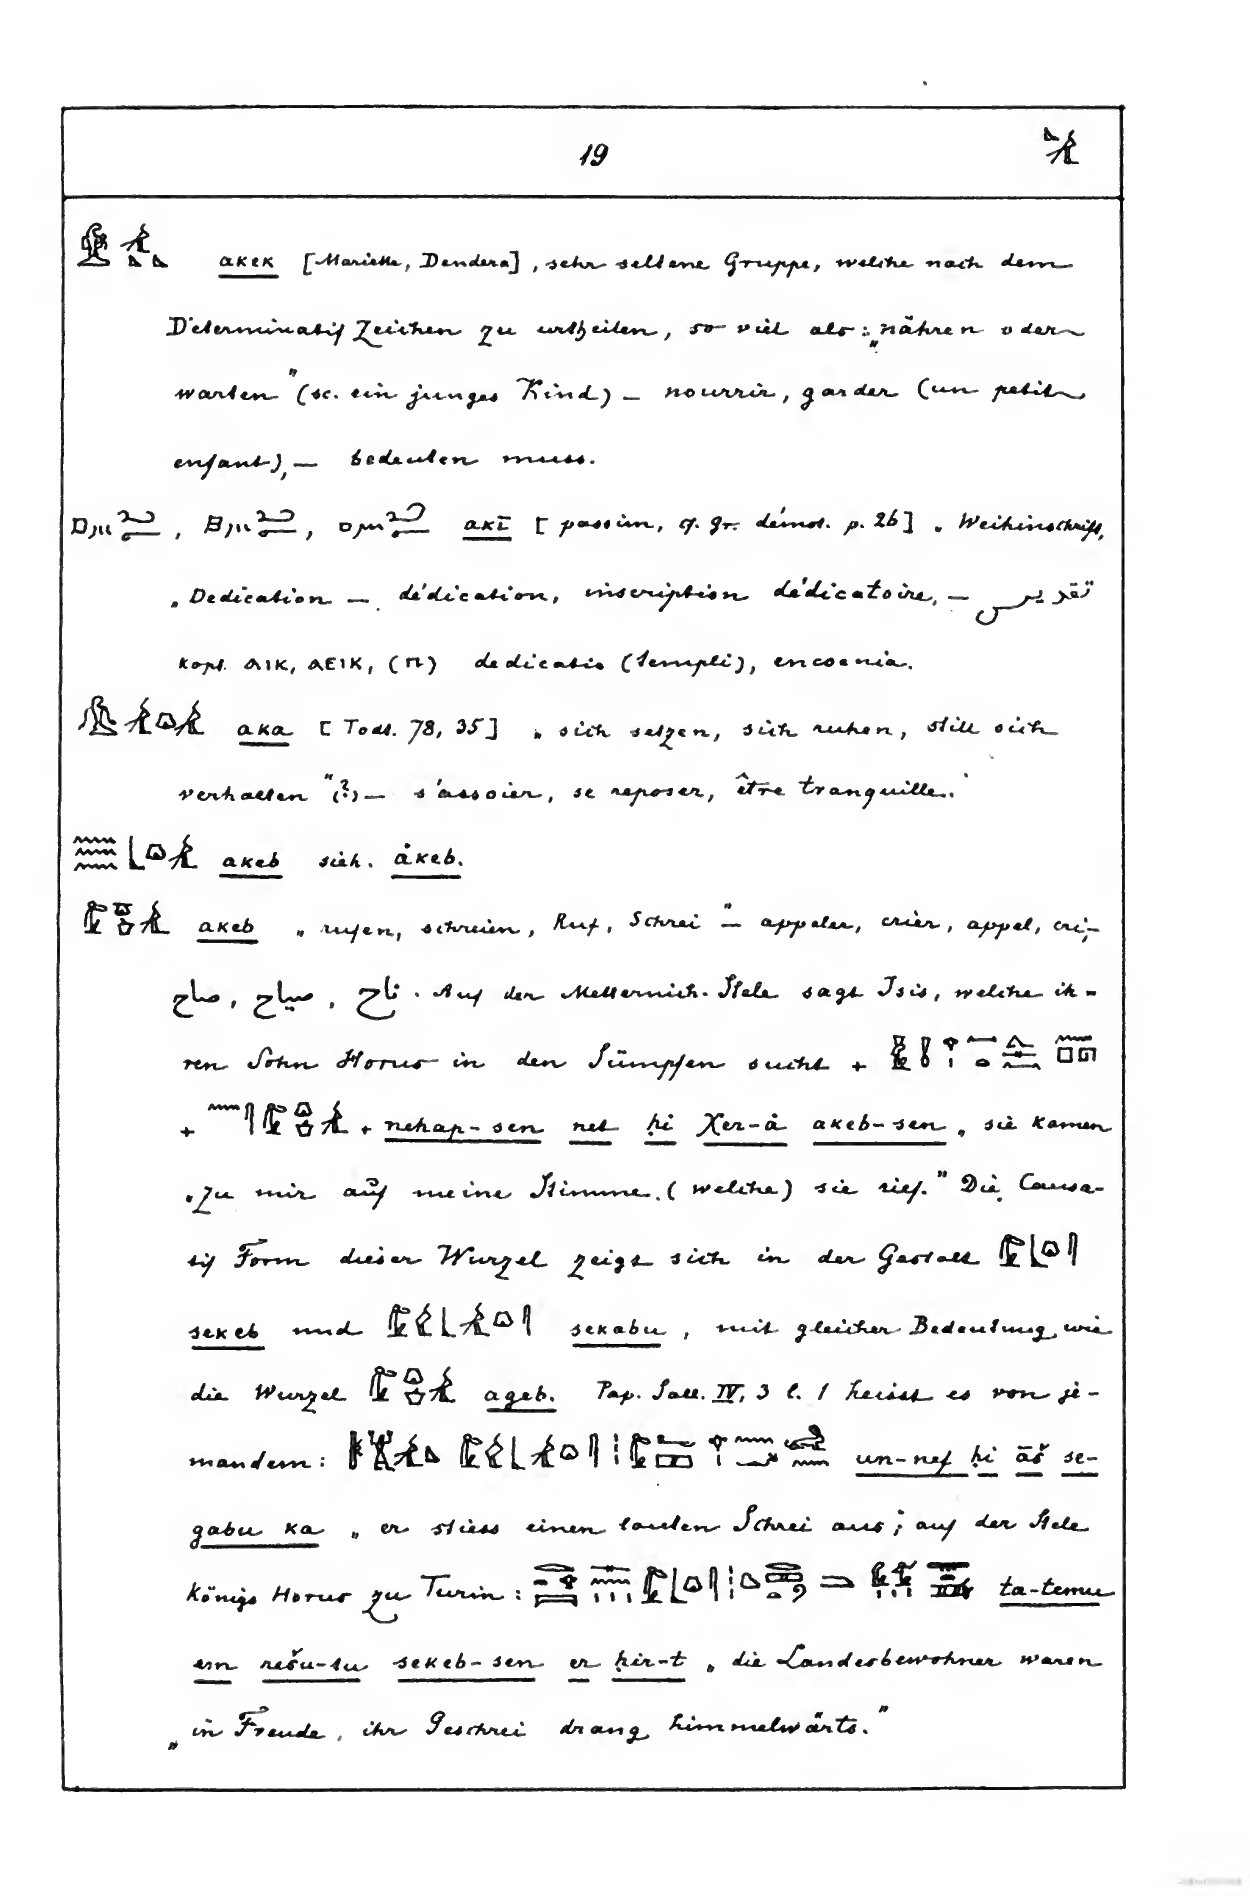 19
akek [Mariette, Dendera], sehr seltene Gruppe, welche nach dem
Determinativ Zeichen zu urtheilen, so viel als: „nähren oder
warten" (sc. ein junges Kind) — nourrir, garder (un petit
enfant), — bedeuten muss.
akī [passim, cf. gr. démot. p. 26] „Weihinschrift,
„Dedication — dédication, inscription dédicatoire, —
kopt. ⲁⲓⲕ, ⲁⲉⲓⲕ, (ⲡ) dedicatio (templi), encoenia.
aka [Todt. 78, 35] „sich setzen, sich ruhen, still sich
verhalten" (?) — s'assoier, se reposer, être tranquille.
akeb sieh. ȧkeb.
akeb „rufen, schreien, Ruf, Schrei" — appeler, crier, appel, cri, —
صاح, صياح, ناح. Auf der Metternich-Stele sagt Isis, welche ih-
ren Sohn Horus in den Sümpfen sucht +
+ + nehap-sen net ḥi χer-ȧ akeb-sen „sie kamen
„zu mir auf meine Stimme, (welche) sie rief." Die Causa-
tif Form dieser Wurzel zeigt sich in der Gestalt
sekeb und sekabu, mit gleicher Bedeutung, wie
die Wurzel ageb. Pap. Sall. IV, 3 l. 1 heisst es von je-
mandem: un-nef ḥi āš se-
gabu ka „er stiess einen lauten Schrei aus; auf der Stele
Königs Horus zu Turin: ta-temu
em rešu-tu sekeb-sen er ḥir-t „die Landesbewohner waren
„in Freude, ihr Geschrei drang himmelwärts."